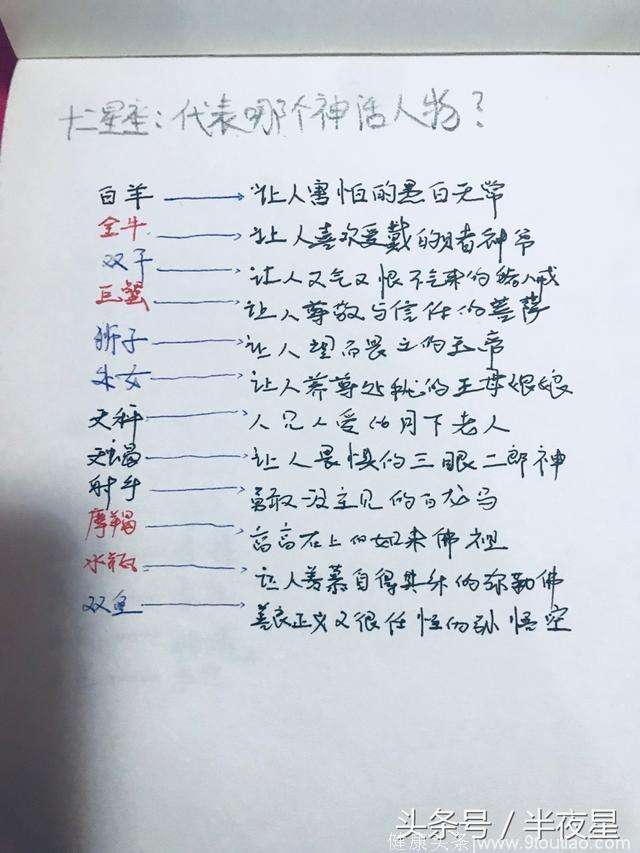 十二星座：代表哪个神话人物？
白羊 让人害怕的黑白无常
金牛 让人喜欢爱戴的财神爷
双子 让人又气又恨不起来的猪八戒
巨蟹 让人尊敬与信任的菩萨
狮子 让人望而畏之的玉帝
处女 让人养尊处优的王母娘娘
天秤 人见人爱的月下老人
天蝎 让人畏惧的三眼二郎神
射手 勇敢没主见的白龙马
摩羯 高高在上的如来佛祖
水瓶 让人羡慕自得其乐的弥勒佛
双鱼 善良正义又很任性的孙悟空
头条号／半夜星
健康头条www.9toutiao.com